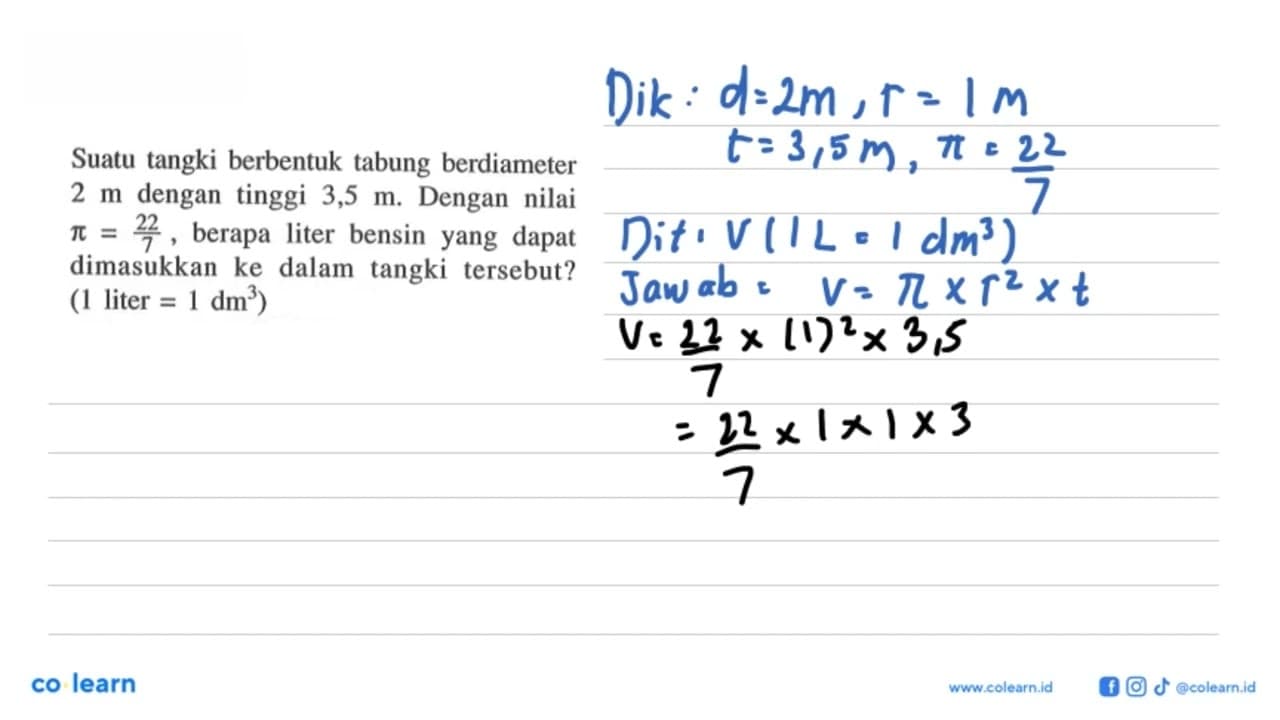 Suatu tangki berbentuk tabung berdiameter
2 m dengan tinggi 3,5 m. Dengan nilai
π = 22/7, berapa liter bensin yang dapat
dimasukkan ke dalam tangki tersebut?
(1 liter = 1 dm³)
Dik: d=2m, r = 1 m
t = 3,5 m, π = 22/7
Dit: V (1 L = 1 dm³)
Jawab: V = π x r² x t
V = 22/7 x (1)² x 3,5
= 22/7 x 1 x 1 x 3
co learn
www.colearn.id
@colearn.id